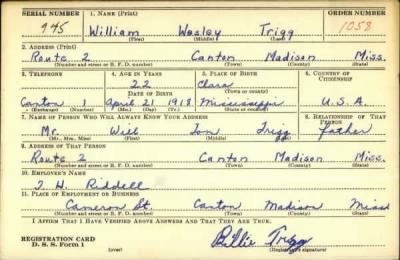 SERIAL NUMBER 1. NAME (Print) ORDER NUMBER
945 William Wesley Trigg 1058
(First) (Middle) (Last)
2. ADDRESS (Print)
Route 2 Canton Madison Miss.
(Number and street or R. F. D. number) (Town) (County) (State)
3. TELEPHONE 4. AGE IN YEARS 5. PLACE OF BIRTH 6. COUNTRY OF CITIZENSHIP
22 Clara
DATE OF BIRTH (Town or county)
Canton 1 April 21 1918 Mississippi U.S.A.
(Exchange) (Number) (Mo.) (Day) (Yr.) (State or country)
7. NAME OF PERSON WHO WILL ALWAYS KNOW YOUR ADDRESS 8. RELATIONSHIP OF THAT PERSON
Mr. Will Tom Trigg father
(Mr., Mrs., Miss) (First) (Middle) (Last)
9. ADDRESS OF THAT PERSON
Route 2 Canton Madison Miss.
(Number and street or R. F. D. number) (Town) (County) (State)
10. EMPLOYER'S NAME
T. H. Riddell
11. PLACE OF EMPLOYMENT OR BUSINESS
Cameron St. Canton Madison Miss
(Number and street or R. F. D. number) (Town) (County) (State)
I AFFIRM THAT I HAVE VERIFIED ABOVE ANSWERS AND THAT THEY ARE TRUE.
REGISTRATION CARD
D. S. S. Form 1 (over) Billie Trigg
(Registrant's signature)